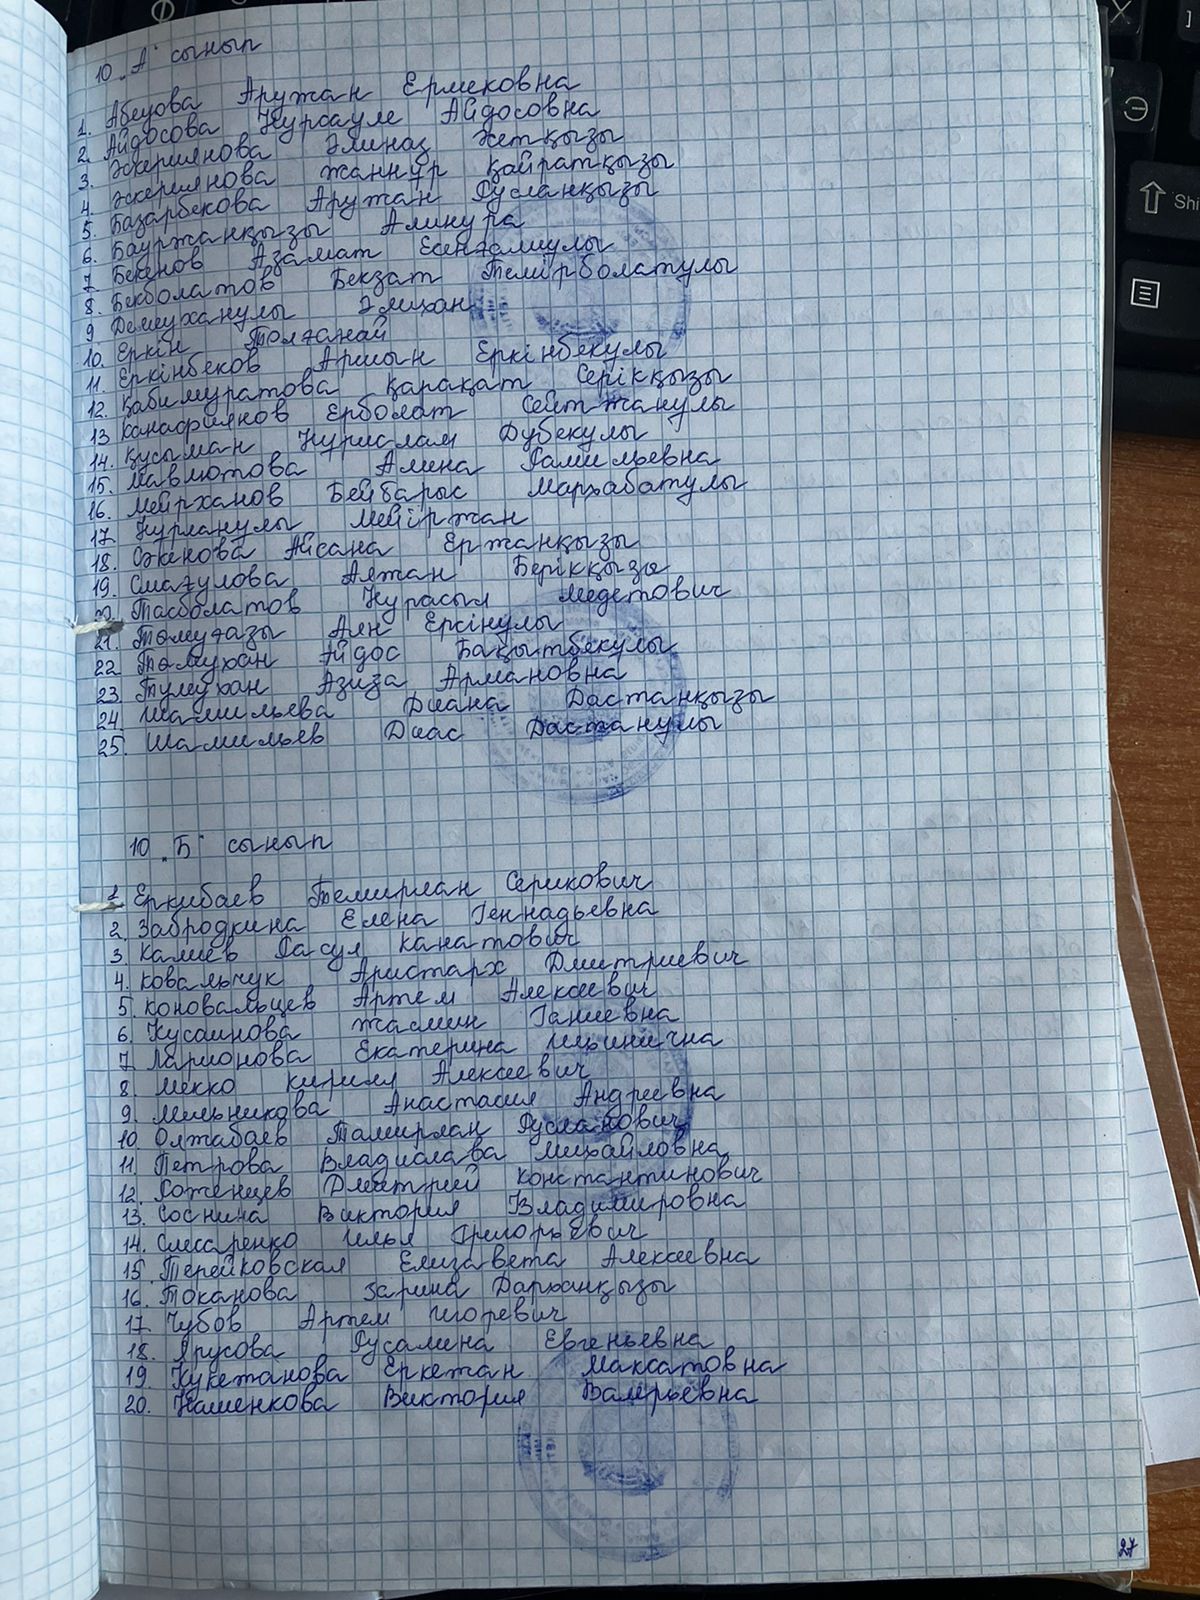 10 "А" сынып
1. Абеуова Аружан Ермековна
2. Айдосова Нурсауле Айдосовна
3. Әкериянова Әлиназ Жетқызы
4. Әкериянова Жаннұр Қайратқызы
5. Базарбекова Аружан Русланқызы
6. Бауржанқызы Алинура
7. Бекенов Азамат Есенғалиұлы
8. Бекболатов Бекзат Темірболатұлы
9. Демеуханулы Әлихан
10. Еркін Толғанай
11. Еркінбеков Аршын Еркінбекулы
12. Қабимуратова Қарақат Серікқызы
13 Канафиянов Ерболат Сейтжанулы
14. Құсыман Нурислам Дубекулы
15. Мавлютова Алина Рамильевна
16. Мейрханов Бейбарыс Марғабатулы
17. Нурланулы Мейіржан
18. Сәкенова Айсана Ержанқызы
19. Смағулова Аяжан Берікқызы
20. Тасболатов Нурасыл Медетович
21. Төлеуғазы Аян Ерсінулы
22 Төлеухан Әйдос Бақытбекулы
23. Тулеухан Азиза Армановна
24. Шамильева Диана Дастанқызы
25. Шамильев Диас Дастанулы
10 "Б" сынып
1 Еркибаев Темирлан Серикович
2. Забродкина Елена Геннадьевна
3. Калиев Расул Канатович
4. Ковальчук Аристарх Дмитриевич
5. Коновальцев Артем Алексеевич
6. Кусаинова Жасмин Ганиевна
7 Ларионова Екатерина Ильинична
8 Мекко Кирилл Алексеевич
9. Мильникова Анастасия Андреевна
10 Олжабаев Тамирлан Русланович
11. Петрова Владислава Михайловна
12. Роженцев Дмитрий Константинович
13. Соснина Виктория Владимировна
14. Слесаренко Илья Григорьевич
15 Терейковская Елизавета Алексеевна
16. Токанова Зарина Дарханқызы
17 Чубов Артем Игоревич
18. Ярусова Русалина Евгеньевна
19. Кукетанова Еркежан Максатовна
20. Наменкова Виктория Валерьевна
27